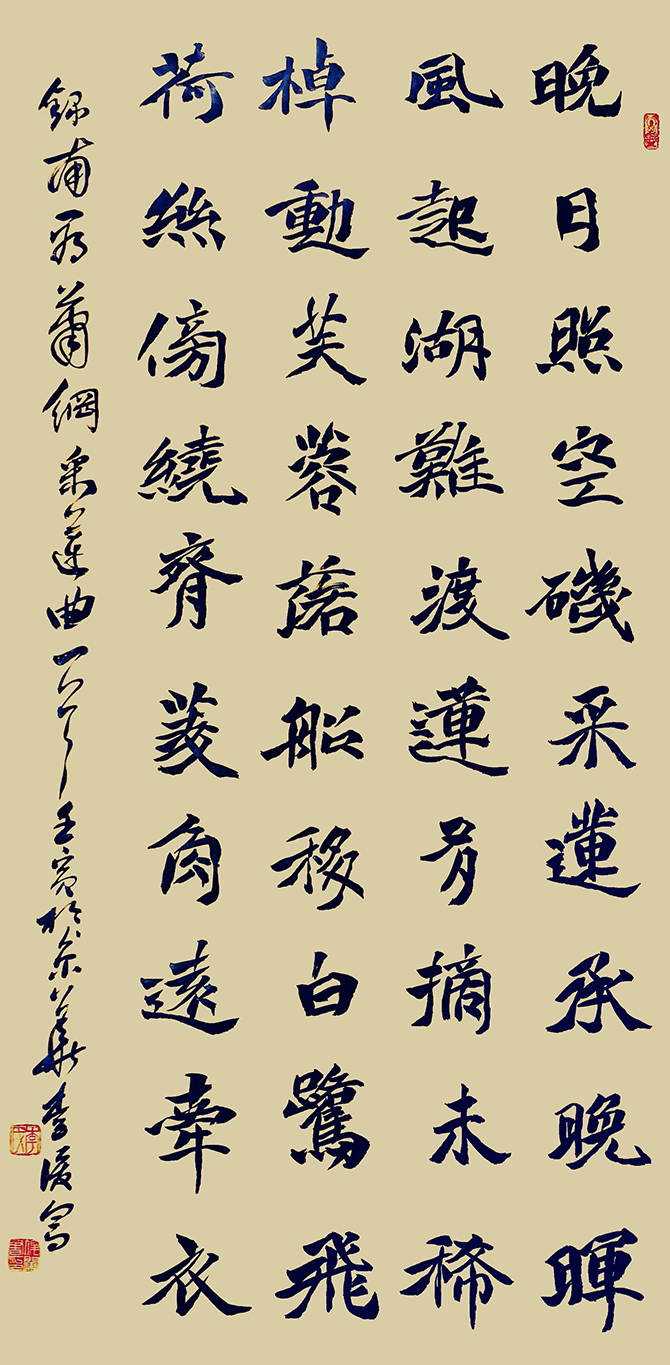 晚月照空磯采蓮承晚暉
風起湖難渡蓮多摘未稀
棹動芙蓉落船移白鷺飛
荷絲傍繞菱角遠牽衣
錄南朝蕭綱采蓮曲一首壬寅於京華李寫